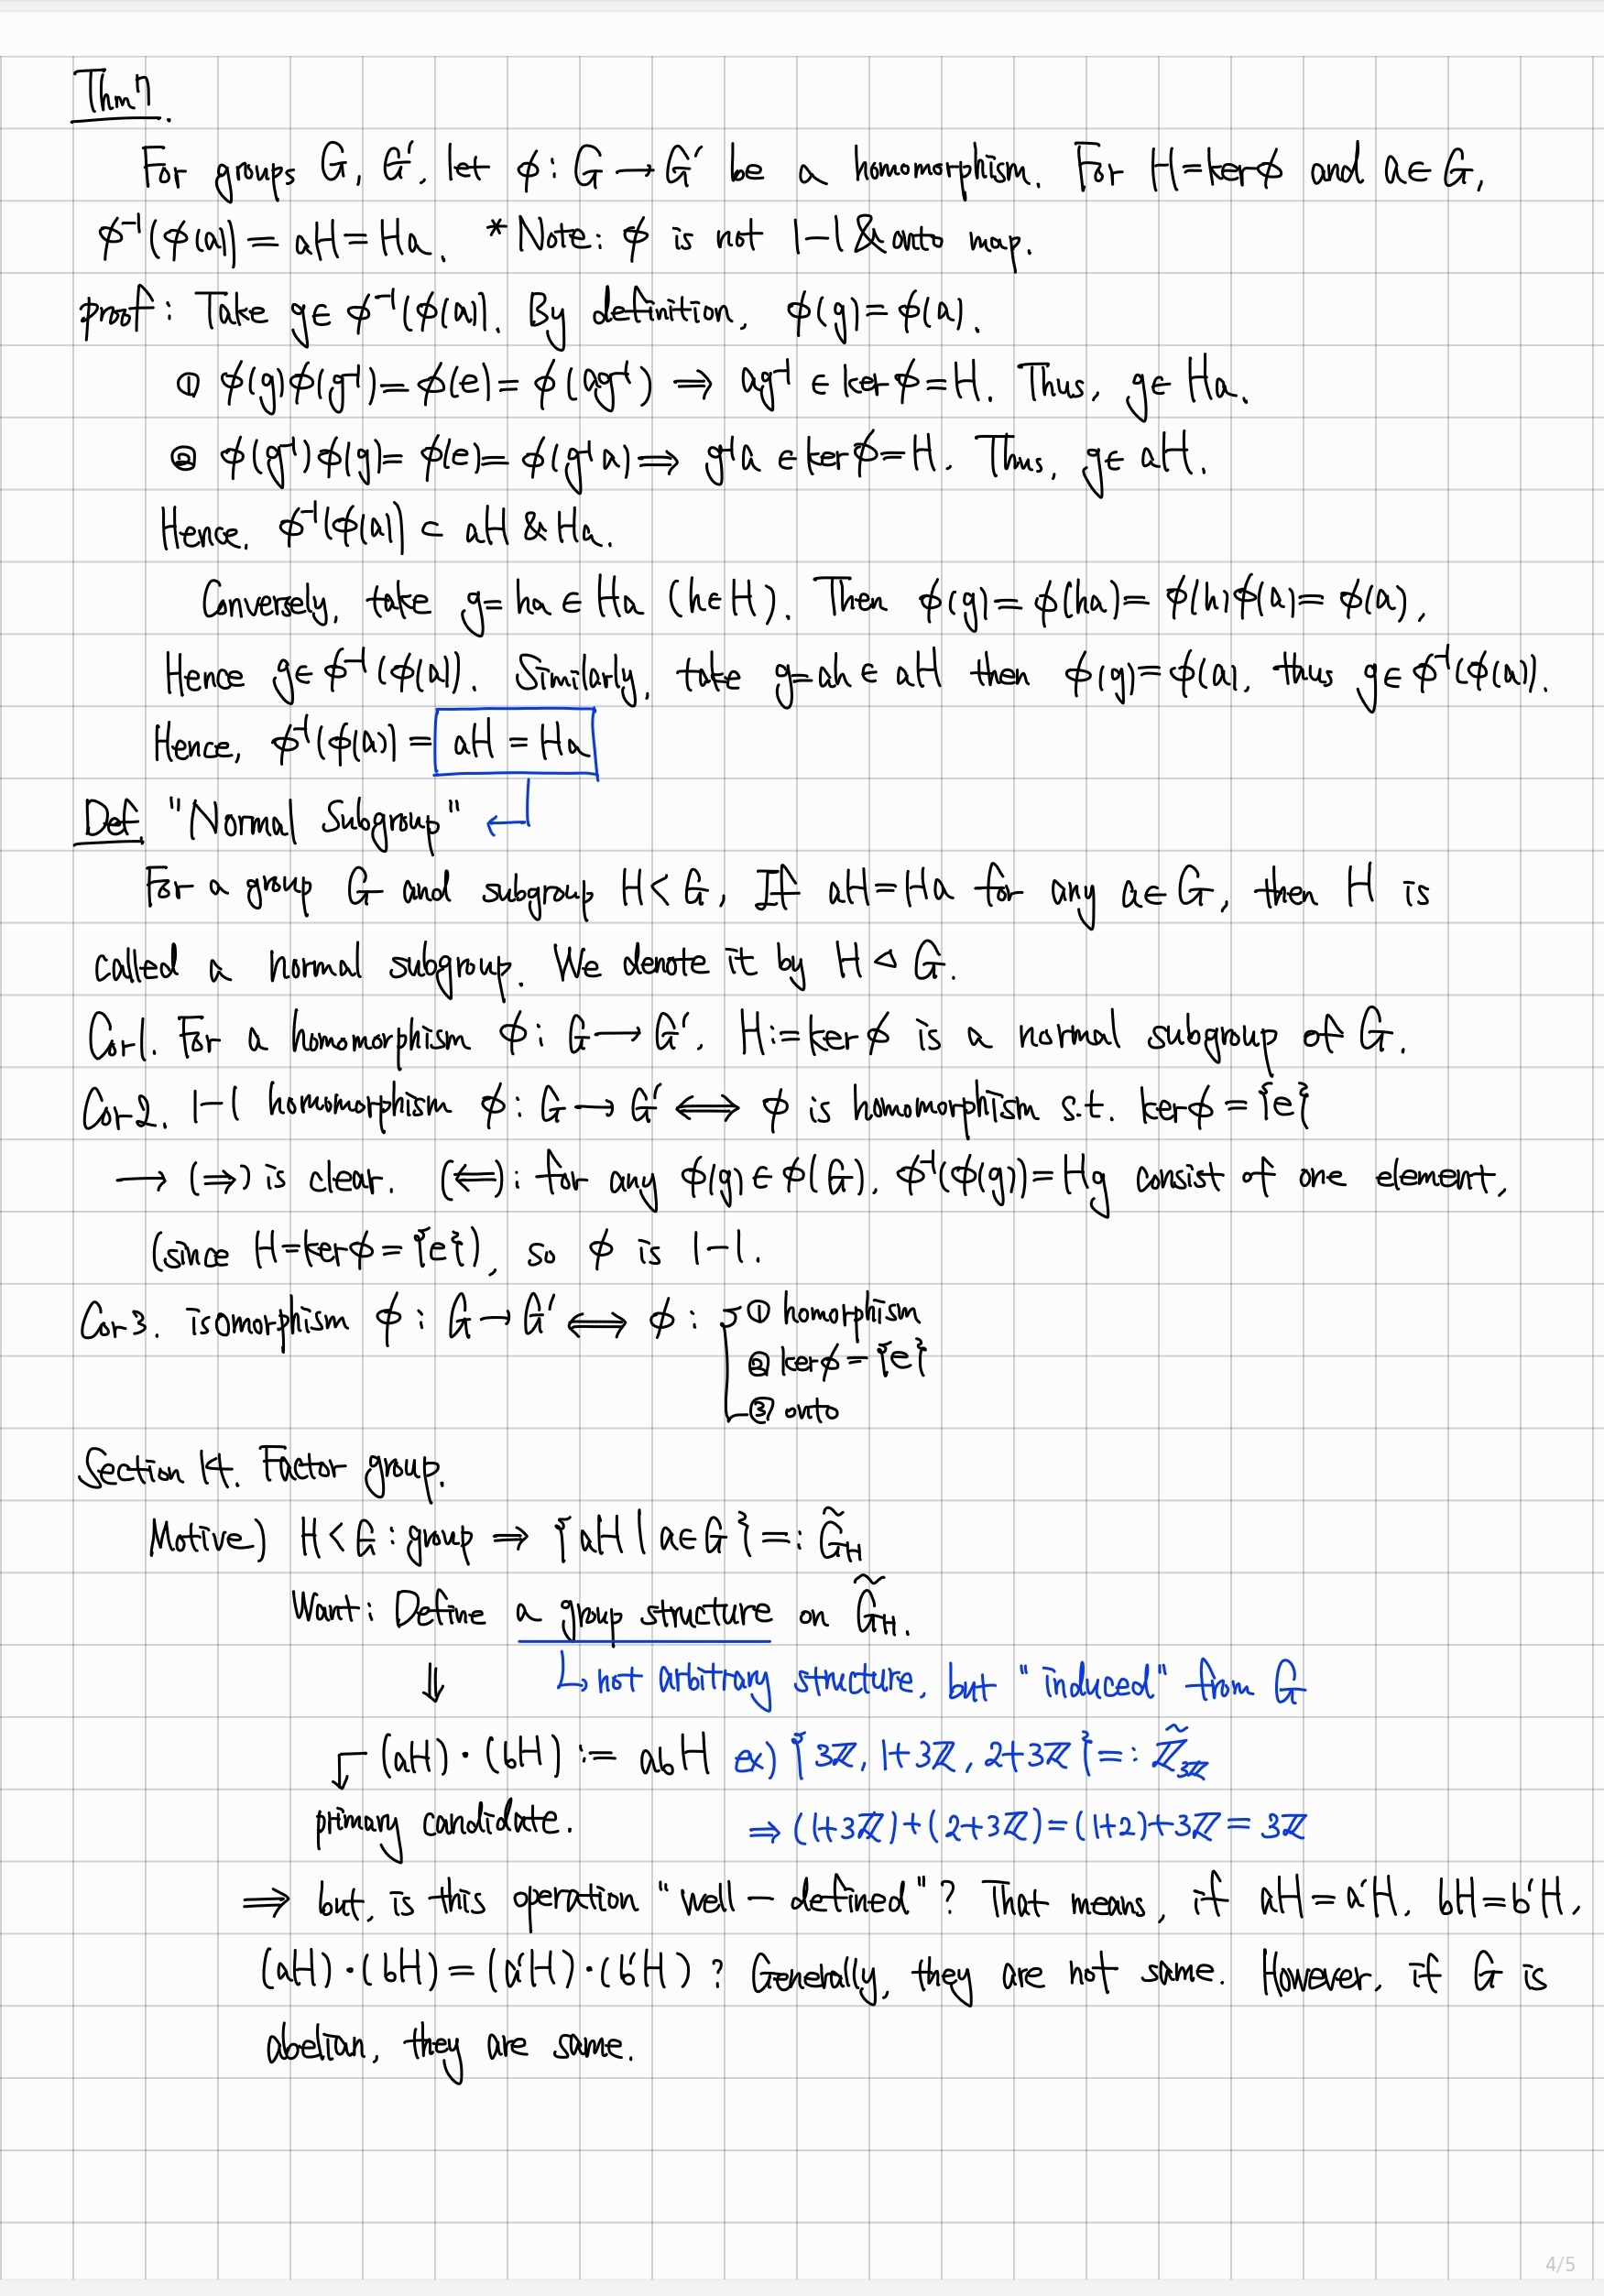 Thm 7.
For groups G, G′, let ϕ: G → G′ be a homomorphism. For H=kerϕ and a∈G,
ϕ⁻¹(ϕ(a)) = aH = Ha. *Note: ϕ is not 1-1 & onto map.
proof: Take g∈ ϕ⁻¹(ϕ(a)). By definition, ϕ(g) = ϕ(a).
① ϕ(g)ϕ(g⁻¹) = ϕ(e) = ϕ(ag⁻¹) ⇒ ag⁻¹ ∈ kerϕ = H. Thus, g∈ Ha.
② ϕ(g⁻¹)ϕ(g) = ϕ(e) = ϕ(g⁻¹a) ⇒ g⁻¹a ∈ kerϕ = H. Thus, g∈ aH.
Hence. ϕ⁻¹(ϕ(a)) ⊂ aH & Ha.
Conversely, take g= ha ∈ Ha (h∈H). Then ϕ(g) = ϕ(ha) = ϕ(h)ϕ(a) = ϕ(a),
Hence g∈ ϕ⁻¹(ϕ(a)). Similarly, take g=ah ∈ aH then ϕ(g) = ϕ(a), thus g∈ ϕ⁻¹(ϕ(a)).
Hence, ϕ⁻¹(ϕ(a)) = aH = Ha
Def. "Normal Subgroup" ←
For a group G and subgroup H<G, If aH=Ha for any a∈G, then H is
called a normal subgroup. We denote it by H ◁ G.
Cor1. For a homomorphism ϕ: G → G′, H:=kerϕ is a normal subgroup of G.
Cor2. 1-1 homomorphism ϕ: G → G′ ⟺ ϕ is homomorphism s.t. kerϕ = {e}
→ (⇒) is clear. (⇐): for any ϕ(g) ∈ ϕ(G), ϕ⁻¹(ϕ(g)) = Hg consist of one element,
(since H=kerϕ={e}), so ϕ is 1-1.
Cor3. isomorphism ϕ: G → G′ ⟺ ϕ: ① homorphism
② kerϕ = {e}
③ onto
Section 14. Factor group.
Motive) H<G: group ⇒ {aH | a∈G} =: G̃_H
Want: Define a group structure on G̃_H.
⇓ ↳ not arbitrary structure, but "induced" from G
(aH)·(bH) := abH ex) {3ℤ, 1+3ℤ, 2+3ℤ} =: ℤ̃_3ℤ
primary candidate. ⇒ (1+3ℤ)+(2+3ℤ)=(1+2)+3ℤ = 3ℤ
⇒ but, is this operation "well-defined"? That means, if aH=a′H, bH=b′H,
(aH)·(bH) = (a′H)·(b′H)? Generally, they are not same. However, if G is
abelian, they are same.
4/5